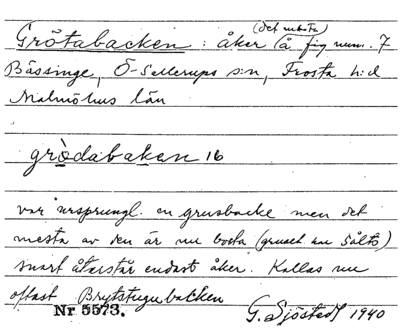 (det mesta)
Grötabacken : åker (å fig num. 7
Bässinge, Ö-Sallerups s:n, Frosta h:d
Malmöhus län
gròdabaken 16
var ursprungl. en grusbacke men det
mesta av den är nu borta (gruset har sålts)
snart återstår endast åker. Kallas nu
oftast Brytstugubacken
Nr 5573. G. Sjöstedt 1940